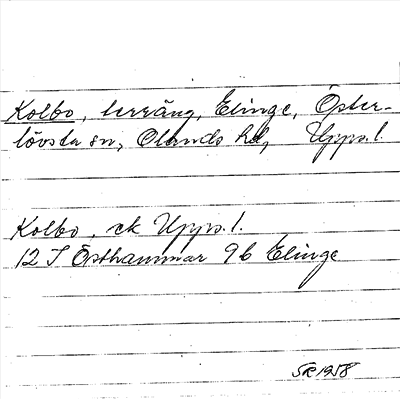 Kolbo, terräng, Elinge, Öster-
lövsta sn, Olands hd, Upps. l.
Kolbo, ek Upps. l.
12 I Östhammar 9b Elinge
SR 1958